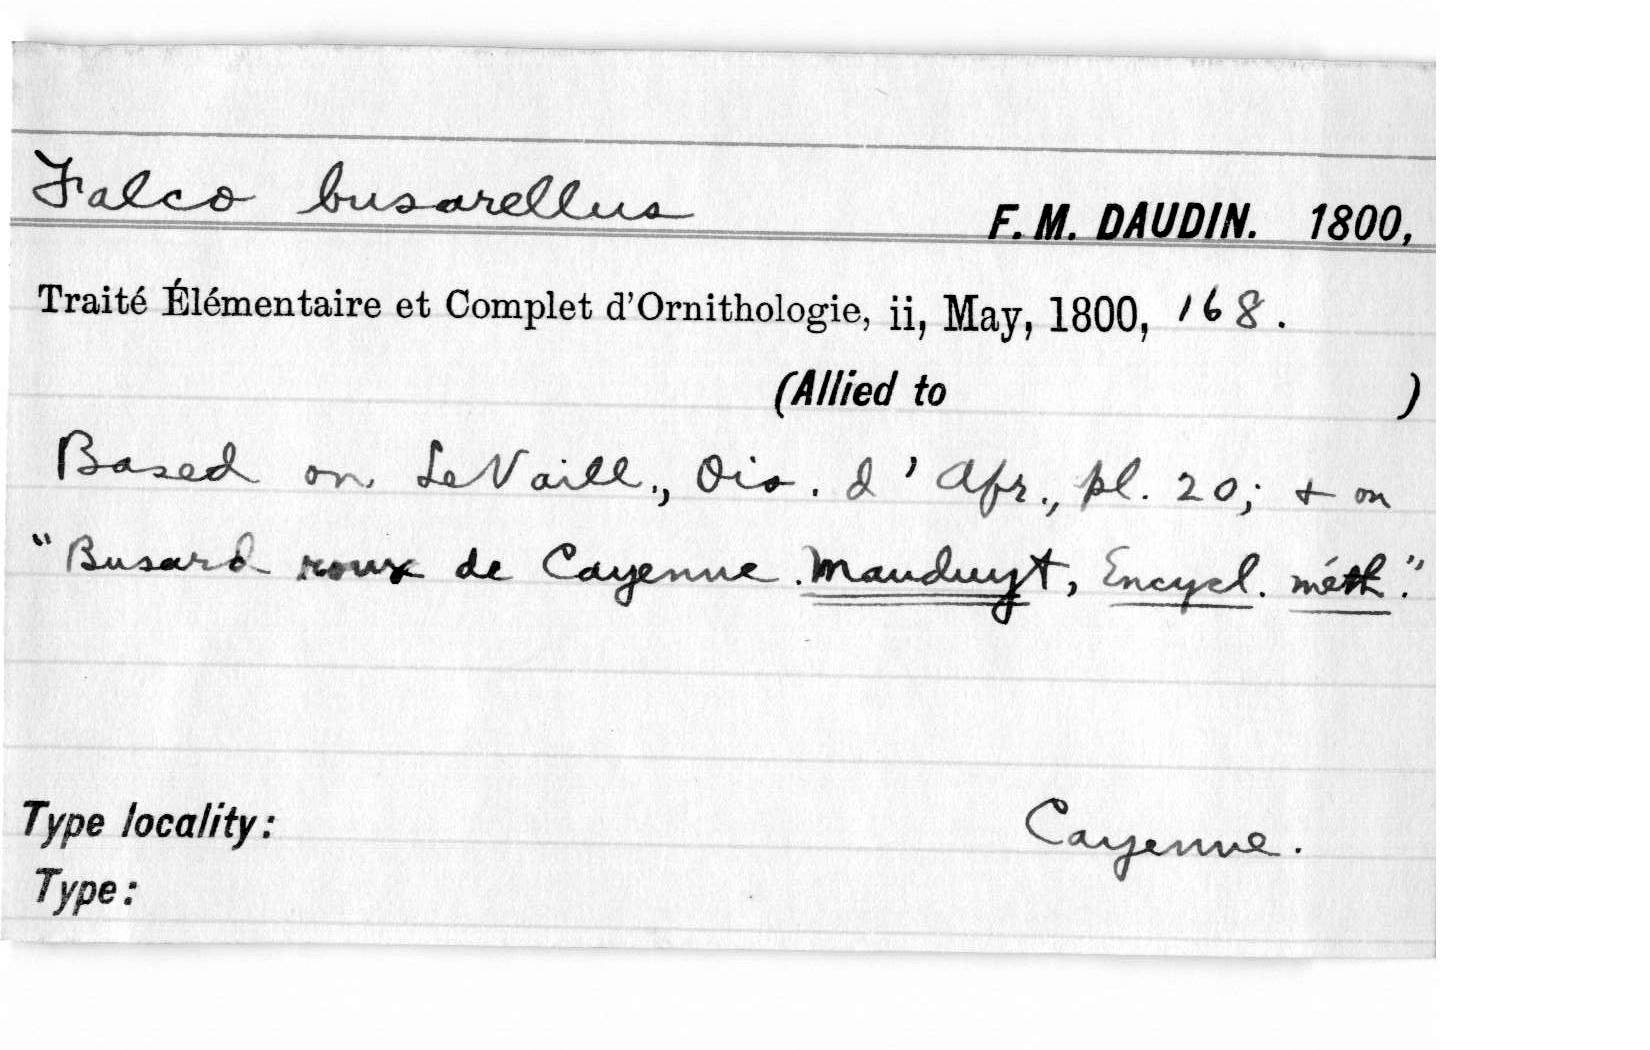 Falco busarellus F. M. DAUDIN. 1800,
Traité Élémentaire et Complet d'Ornithologie, ii, May, 1800, 168.
(Allied to )
Based on LeVaill., Ois. d'Afr., pl. 20; + on
"Busard roux de Cayenne. Mauduyt, Encycl. méth."
Type locality: Cayenne.
Type: